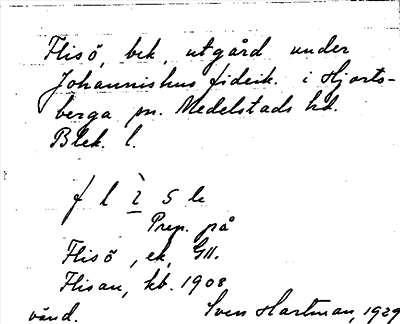 Flisö, bek. utgård under
Johannishus fideik. i Hjorts-
berga sn. Medelstads hd.
Blek. l.
f l ì s
Prep. på
Flisö, ek, GH.
Flisan, kb. 1908
vänd. Sven Hartman, 1929